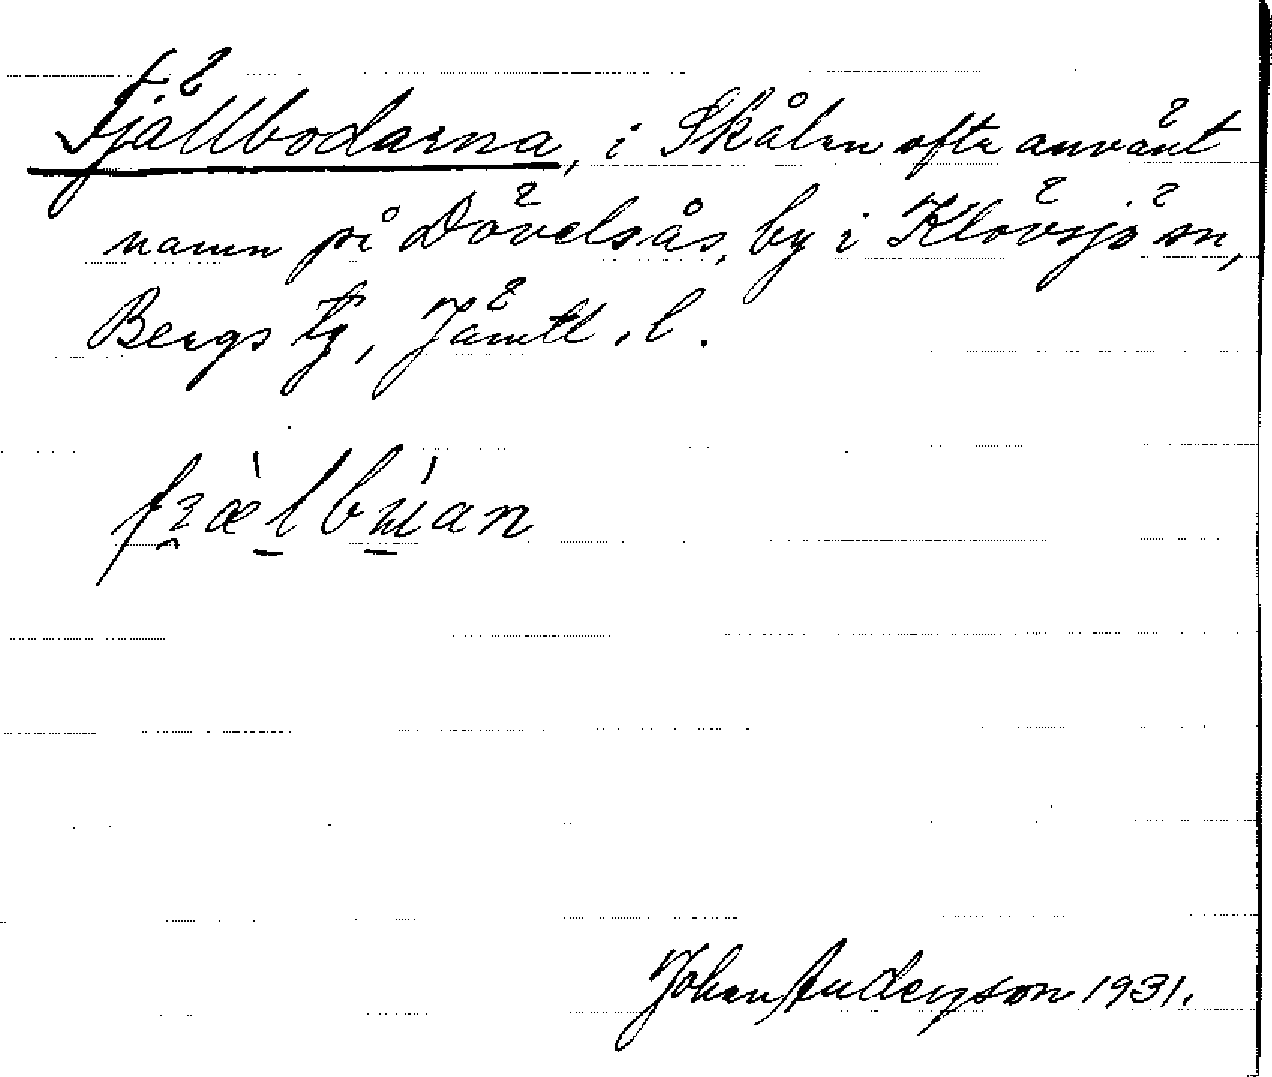 Fjällbodarna, i Skålan ofta använt
namn på Dövelsås, by i Klövsjö sn,
Bergs tg, Jämtl. l.
Johan Anderson 1931.